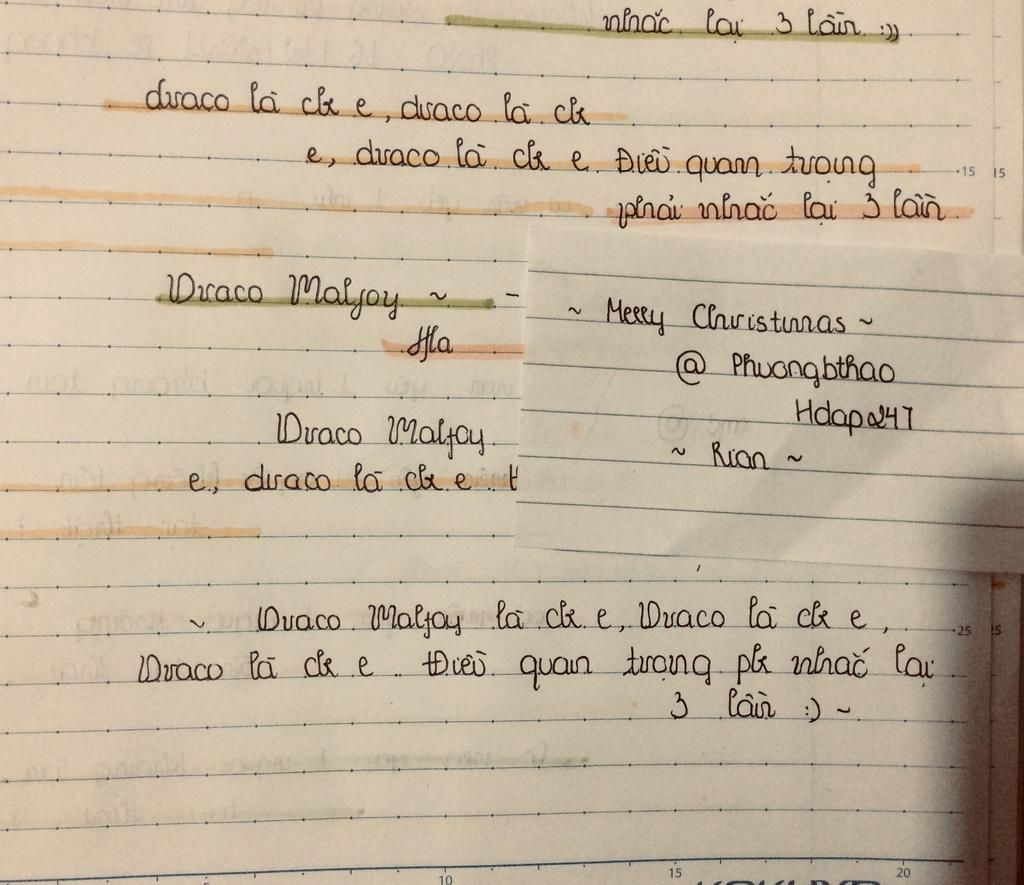 nhắc lại 3 lần :))
draco là ck e, draco là ck
e, draco là ck e. Điều quan trọng
phải nhắc lại 3 lần
Draco Malfoy ~ -
Draco Malfoy
e, draco là ck e.
~ Merry Christmas ~
@ Phuongbthao
Hdapα247
~ Rian ~
~ Draco Malfoy là ck e, Draco là ck e,
Draco là ck e. Điều quan trọng pk nhắc lại
3 lần :) ~
15 15
25
10 15 20